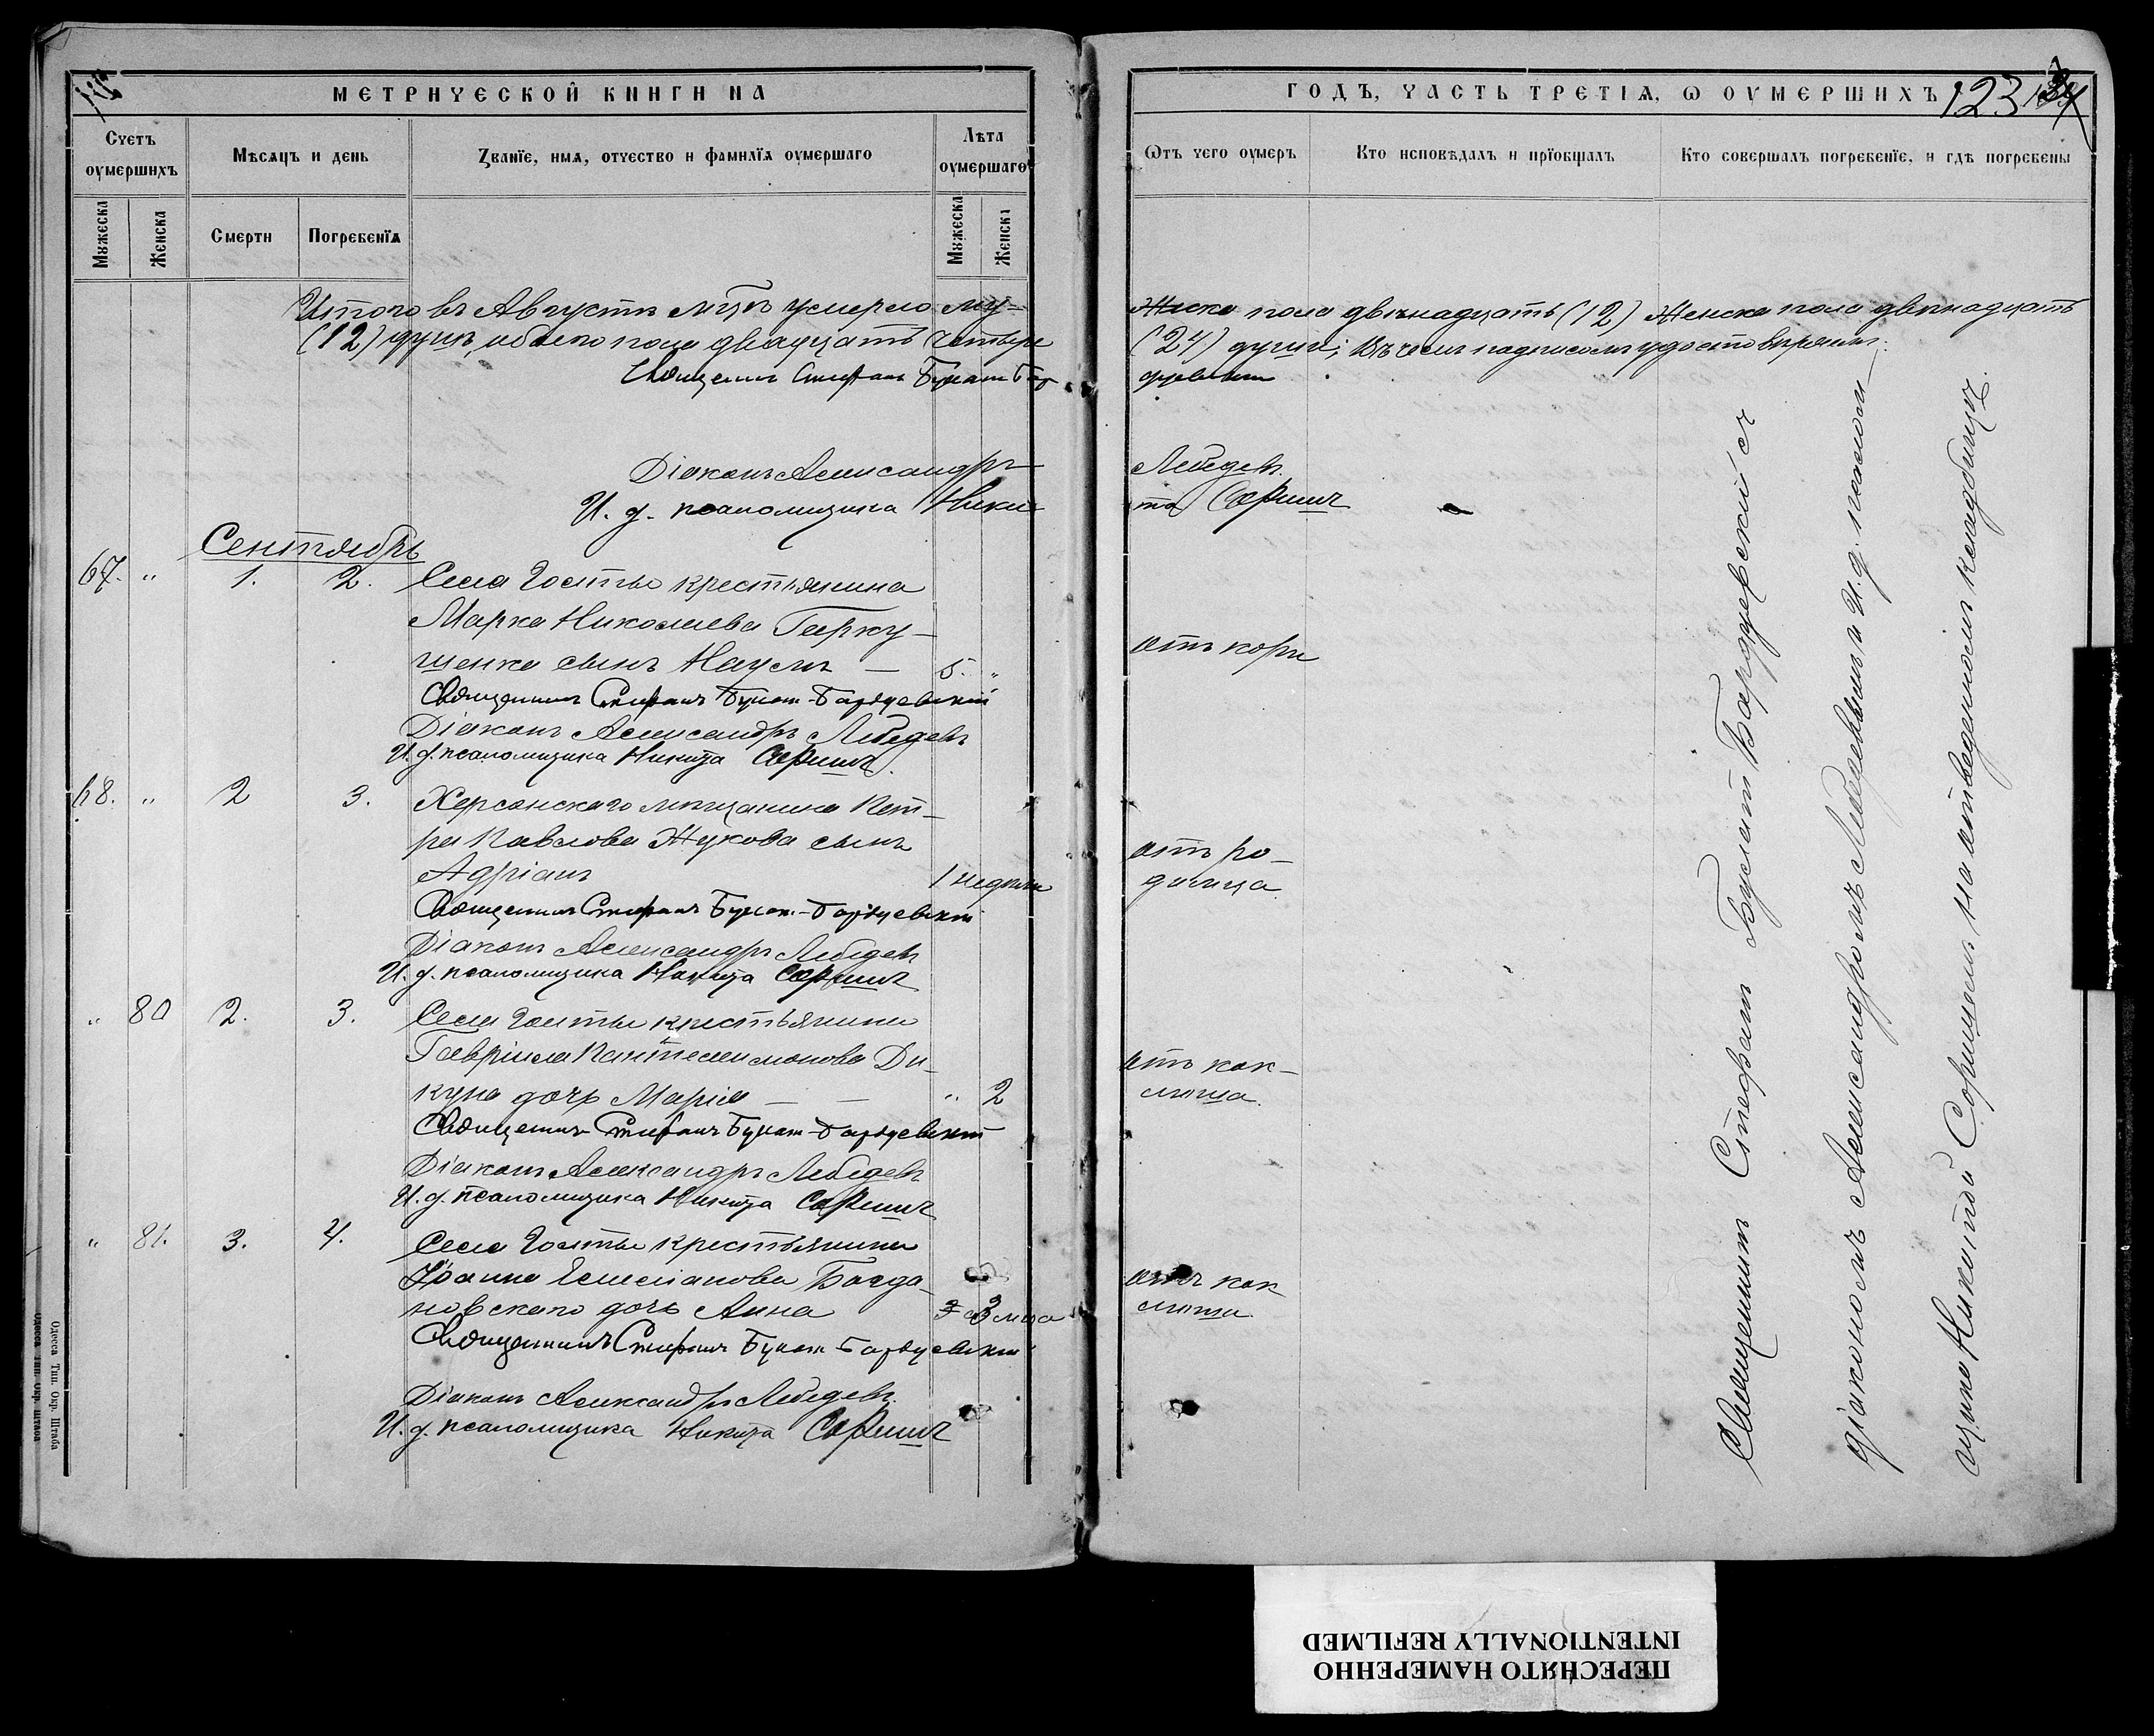 МЕТРИЧЕСКОЙ КНИГИ НА
Счетъ оумершихъ
Мѣсяцъ и день
Званїе, имя, отчество и фамилїя оумершаго
Лѣта оумершаго
Мужеска
Женска
Смерти
Погребенїя
Мужеска
Женска
Итого въ Августѣ м-цѣ умерло му-
(12) душъ, обоего пола двадцать четыре
Священникъ Стефанъ Булат-Бар
Діаконъ Александръ
И. д. псаломщика Ники
Сентябрь
67. " 1. 2. Села крестьянина
Марка Николаева Гарку-
шенка сынъ Наумъ — 5. "
Священникъ Стефанъ Булат-Бардуевскій
Діаконъ Александръ Лебедевъ
И. д. псаломщика Никита
68. " 2 3. Херсонскаго мѣщанина Пет-
ра Павлова Жукова сынъ
Адріанъ 1 недѣли
Священникъ Стефанъ Булат-Бардуевскій
Діаконъ Александръ Лебедевъ
И. д. псаломщика Никита
" 80 2. 3. Села крестьянина
Гавріила Пантелеимонова Ди-
куна дочь Марія — — " 2
Священникъ Стефанъ Булат-Бардуевскій
Діаконъ Александръ Лебедевъ
И. д. псаломщика Никита
" 81. 3. 4. Села крестьянина
Іоанна Емеліанова Богда-
новскаго дочь Анна 3 м-ца
Священникъ Стефанъ Булат-Бардуевскій
Діаконъ Александръ Лебедевъ
И. д. псаломщика Никита
Одесса Тип. Окр. Штаба
ГОДЪ, ЧАСТЬ ТРЕТІЯ, Ѡ ОУМЕРШИХЪ
123
Ѿтъ чего оумеръ
Кто исповѣдалъ и прїобщалъ
Кто совершалъ погребенїе, и гдѣ погребены
жска пола двѣнадцать (12) Женска пола двѣнадцать
(24) души; Въ чемъ подписомъ удостовѣряемъ:
дуевскій
Лебедевъ
та
отъ кори
отъ ро-
димца
отъ кок-
люша.
отъ кок
люша.
Священникъ Стефанъ Булат Бардуевскій съ
діакономъ Александромъ Лебедевымъ и И. д. псалом-
щика Никитой на отведенномъ кладбищѣ.
ПЕРЕСНЯТО НАМЕРЕННО
INTENTIONALLY REFILMED